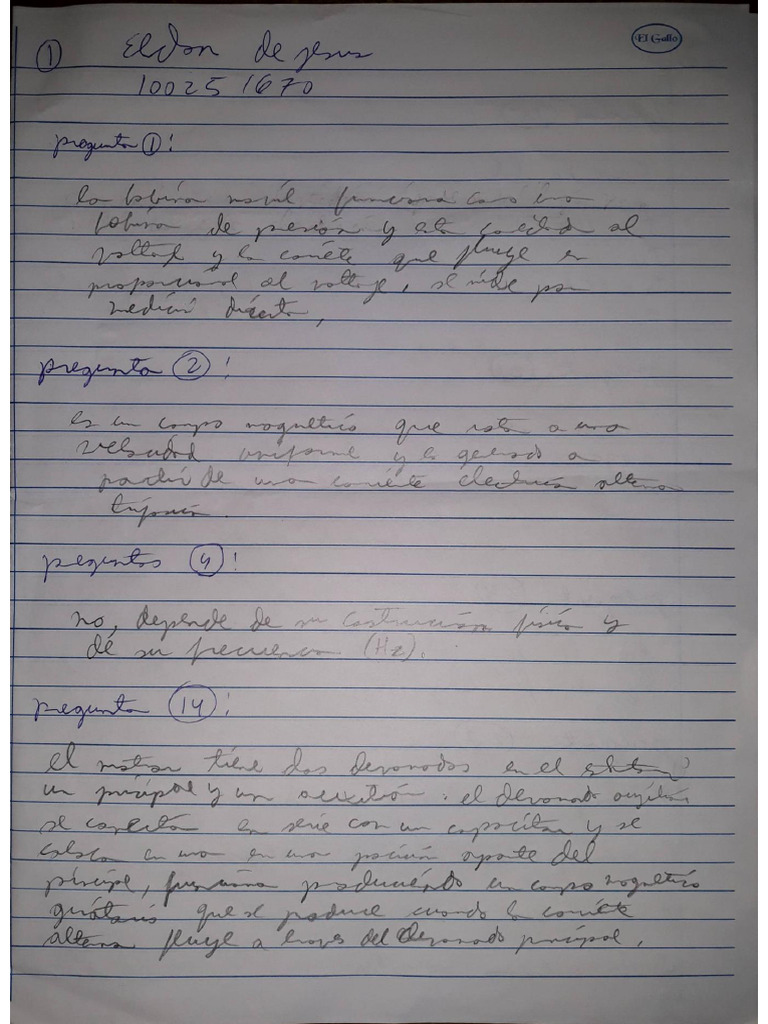 El Gallo
① Eldon de jesus
100251670
pregunta ①:
la bobina movil funciona como una
bobina de presion y esta conectada al
voltaje y la corriête que fluye es
proporcional al voltaje, se mide por
medicion directa,
pregunta ②:
es un campo magnetico que rota a una
velocidad uniforme y es generado a
partir de una corriente electrica alterna
trifasica.
preguntas ④:
no, depende de su costruccion fisica y
de su frecuencia (Hz).
pregunta ⑭:
el motor tiene dos devanados en el
un principal y un auxiliar: el devanado auxiliar
se conecta en serie con un capacitor y se
coloca en una en una posicion aparte del
funciona produciendo un campo magnetico
giratorio que se produce cuando la corriente
alterna fluye a traves del devanado principal.